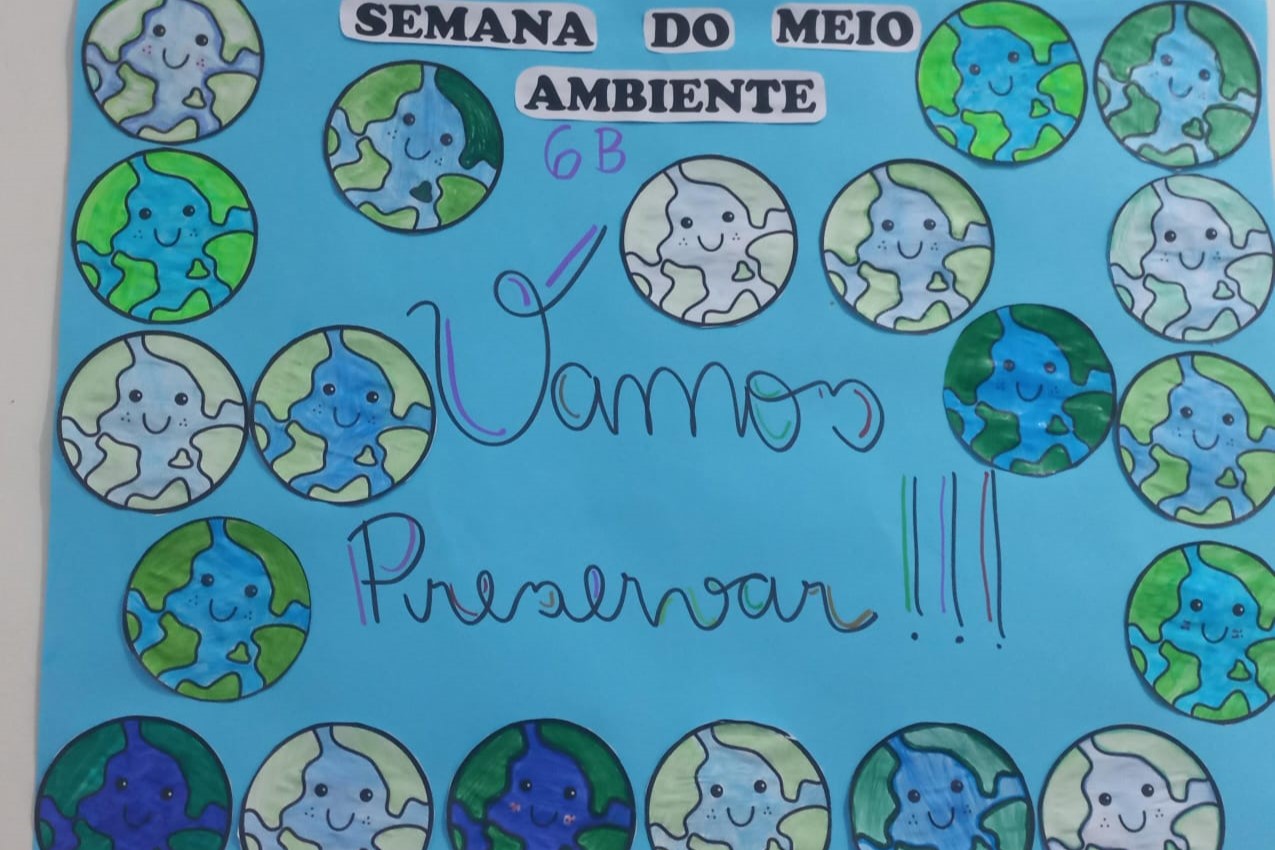 SEMANA DO MEIO
AMBIENTE
6B
Vamos
Preservar!!!